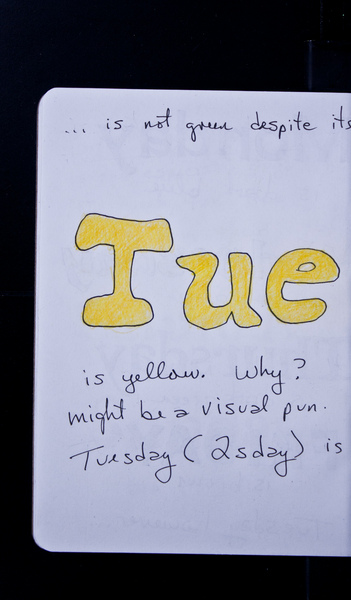 ... is not green despite its
Tue
is yellow. Why?
might be a visual pun.
Tuesday (2sday) is